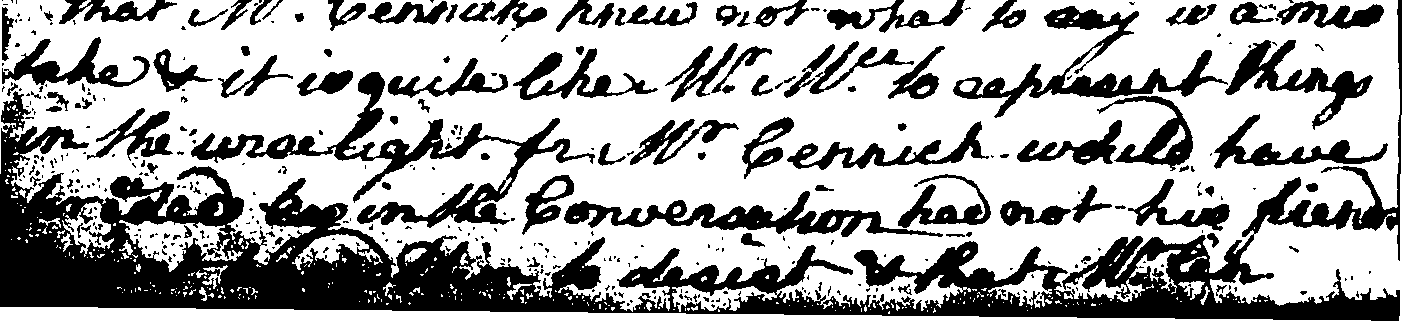 that Mr. Cennick knew not what to say is a mis
take & it is quite like Mr. Mca. to represent things
in the worse light. fr Mr. Cennick would have
in the Conversation had not his friends
him to desist & that Mr Cen